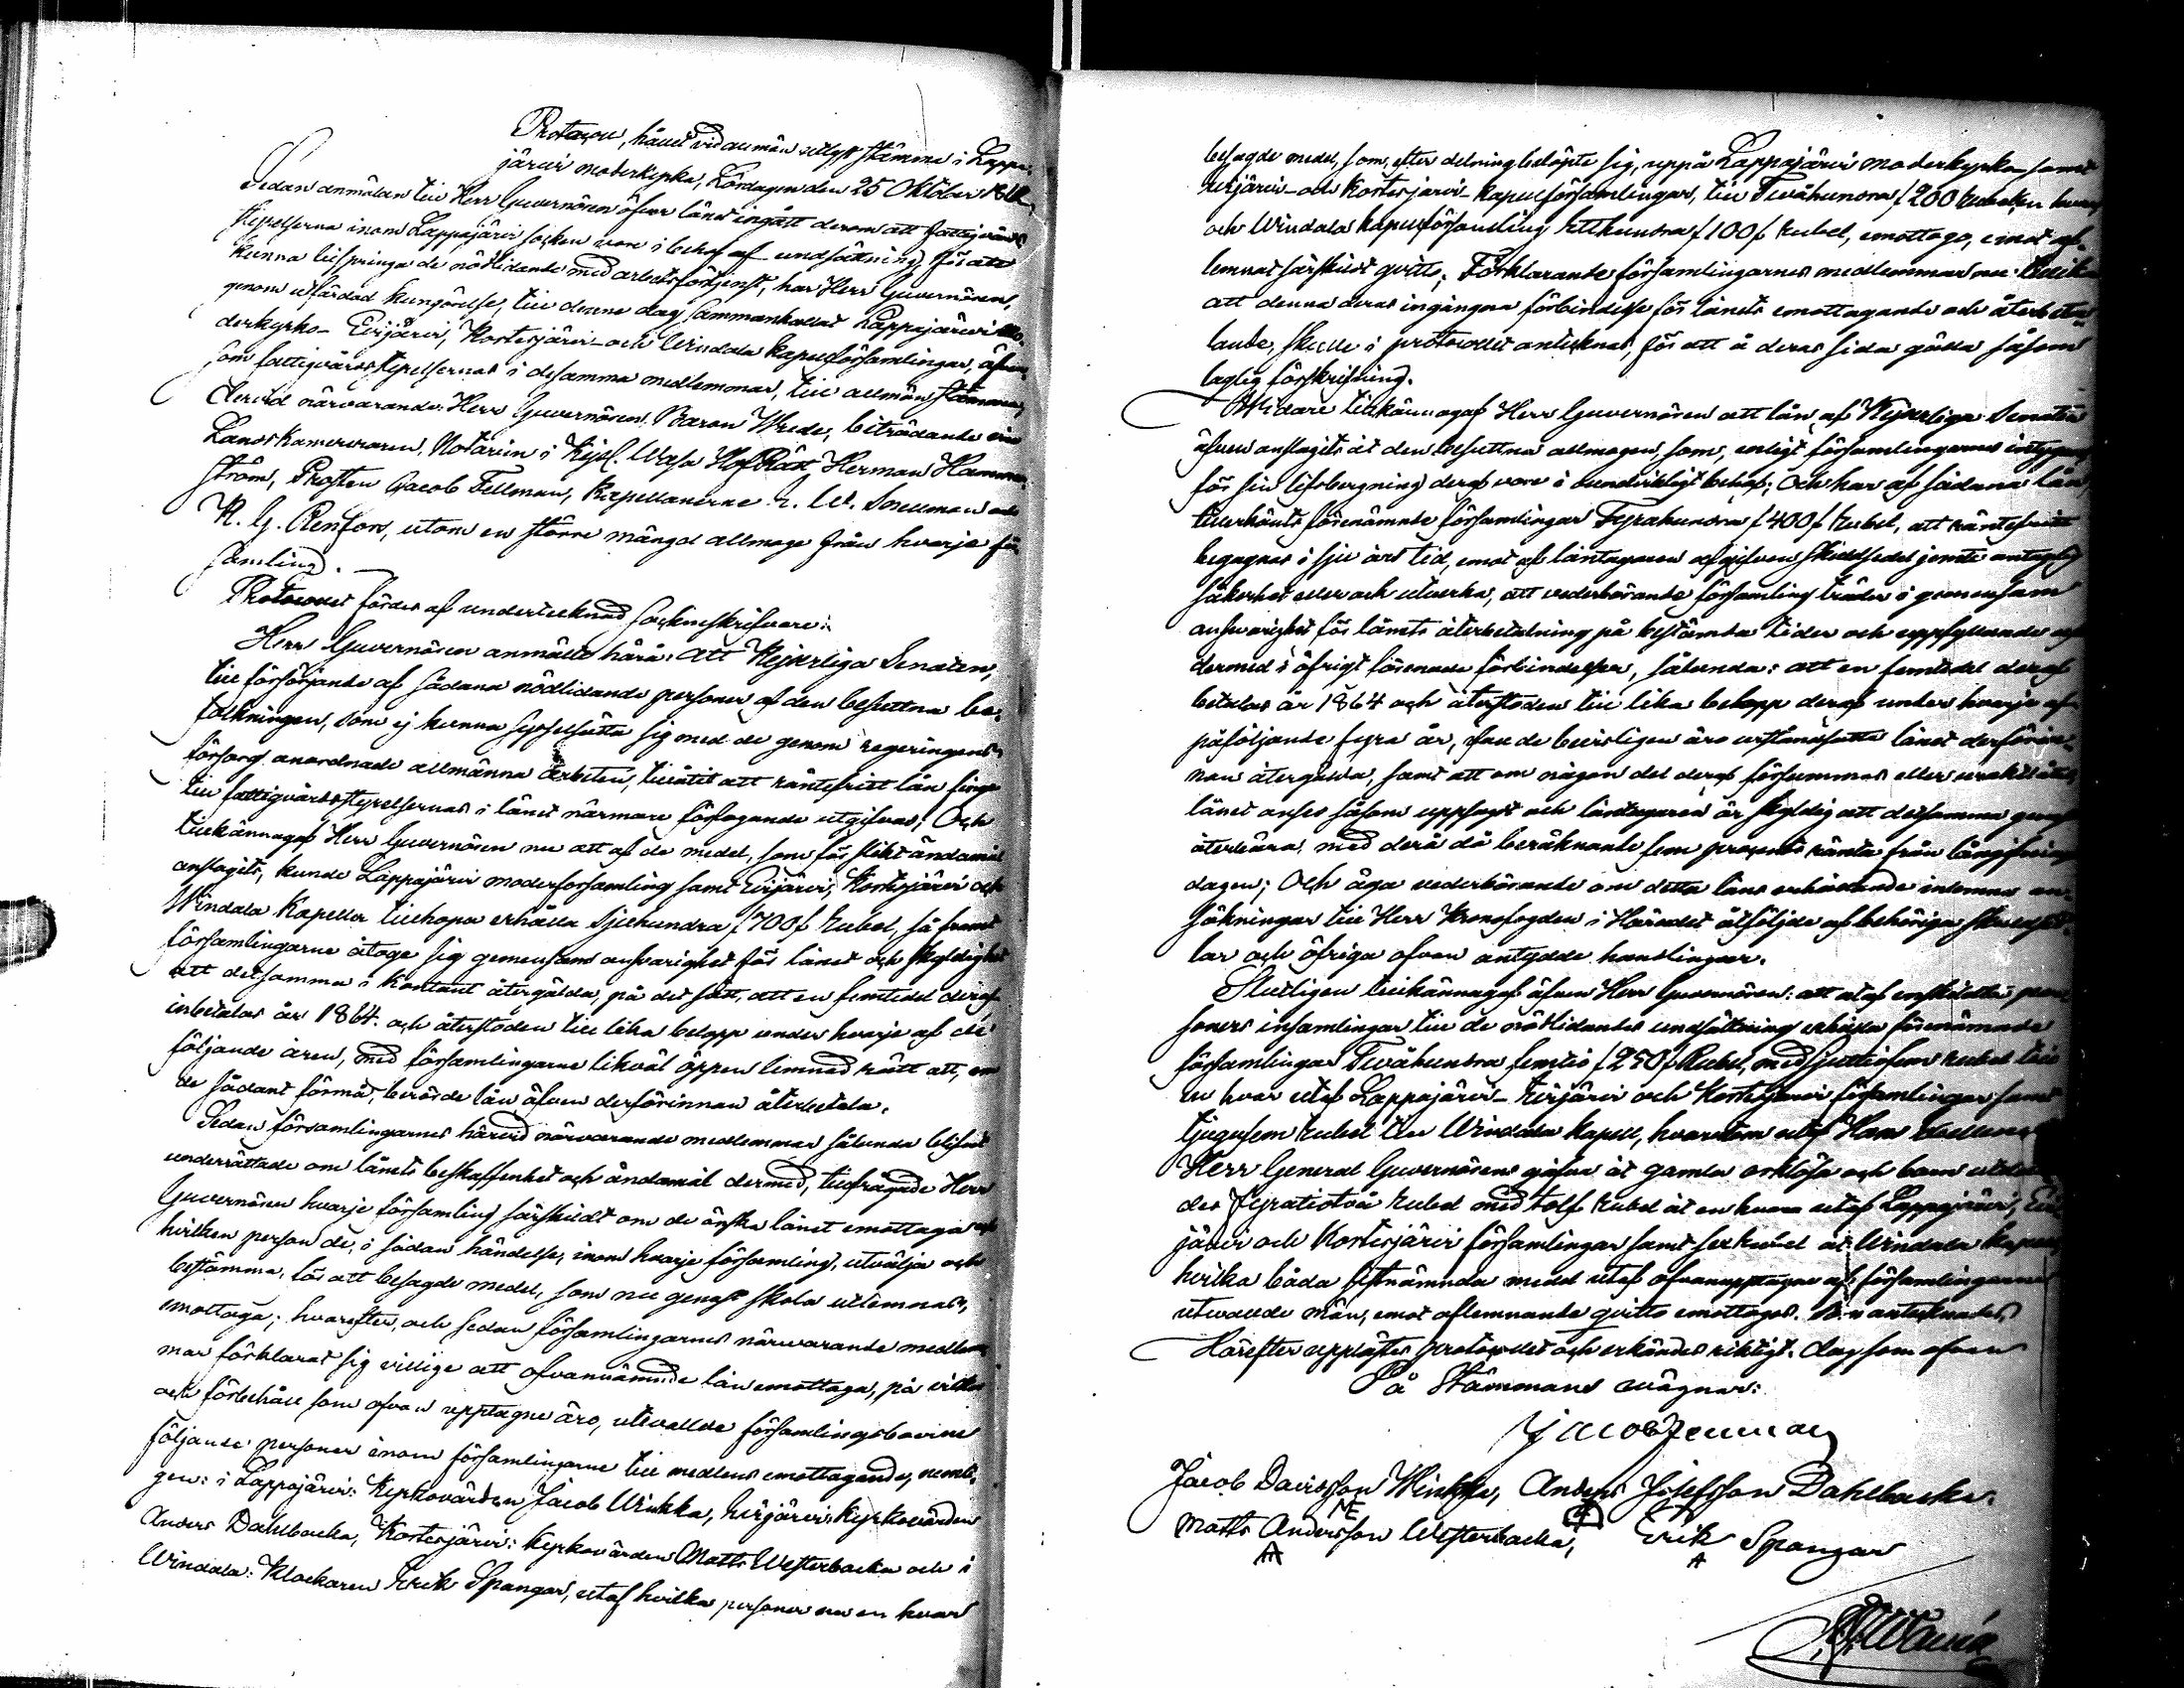 Protocoll, hållet vid allmän utlyst stämma i Lappa-
järvi moderkyrka, Lördagen den 25 Oktober 1862.
Sedan anmälan till Herr Guvernören öfver länet ingått derom att fattigvårds
styrelserna inom Lappajärvi socken vore i behof af undsättning för att
kunna bispringa de nödlidande med arbetsförtjenst, har Herr Guvernören,
genom utfärdad kungörelse, till denne dag sammankallat Lappajärvi Mo-
derkyrko- Evijärvi, Kortesjärvi- och Windala kapellförsamlingar, äfven-
som fattigvårdsstyrelsernas i desamma medlemmar, till allmän stämma,
dervid närvarande: Herr Guvernören Baron Wrede, biträdande
Landskamereraren, Notarien i Kejserl. Wasa HofRätt Herman Hammar-
ström, Prosten Jacob Fellman, Kapellanerne Snellman och
K. G. Renfors, utom en större mängd allmoge från hvarje för-
samling.
Protocollet fördes af undertecknad Sockneskrifvare.
Herr Guvernören anmälte härå: att Kejserliga Senaten,
till försörjande af sådana nödlidande personer af den besuttna be-
folkningen, som ej kunna sysselsätta sig med de genom regeringens
försorg anordnade allmänna arbeten, tillåtit att räntefritt lån finge
till fattigvårdsstyrelsernas i länet närmare förfogande utgifvas; Och
tillkännagaf Herr Guvernören nu att af de medel, som för slikt ändamål
anslagits, kunde Lappajärvi moderförsamling samt Evijärvi, Kortesjärvi och
Windala Kapeller tillhopa erhålla Sjuhundra /:700/: Rubel, så framt
församlingarne åtoge sig gemensam ansvarighet för lånet och skyldighet
att detsamma i kontant återgälda, på det sätt, att en femtedel deraf
inbetalas år 1864. och återstoden till lika belopp under hvarje af de
följande åren, med församlingarne likväl öppen lemnad rätt att, om
de sådant förmå, berörde lån äfven derförinnan återbetala.
Sedan församlingarnes härvid närvarande medlemmar sålunda blifvit
underrättade om lånets beskaffenhet och ändamål dermed, tillfrågade Herr
Guvernören hvarje församling särskildt om de önska lånet emottaga och
hvilken person de, i sådan händelse, inom hvarje församling, utvälja och
bestämma, för att besagde medel, som nu genast skola utlemnas,
emottaga; hvarefter, och sedan församlingarnes närvarande medlem-
mar förklarat sig villige att ofvannämnde lån emottaga, på vilkor
och förbehåll som ofvan upptagne äro, utvallde församlingsboerne
följande personer inom församlingarne till medlens emottagande, nemli-
gen: i Lappajärvi: Kyrkovärden Jacob Winkka, Evijärvi: Kyrkovärden
Anders Dahlbacka, Kortesjärvi: Kyrkovärden Matts Westerbacka och i
Windala: Klockaren Erik Spangar, utaf hvilka personer nu en hvar
besagde medel, som, efter delning belöpte sig, uppå Lappajärvi moderkyrka- samt
Evijärvi- och Kortesjärvi- kapellförsamlingar, till Tvåhundra /:200/: Rubel
och Windala kapellförsamling Etthundra /:100/: Rubel, emottogo, emot af-
lemnat särskildt qvitto; Förklarande församlingarnes medlemmar nu tillika
att denna deras ingångna förbindelse för lånets emottagande och återbeta-
lande, skulle i protocollet antecknas, för att å deras sida gälla såsom
laglig förskrifning.
Widare tillkännagaf Herr Guvernören att lån af Kejserliga Senaten
äfven anslagits åt den besuttna allmogen, som, enligt församlingarnes intygan,
för sin lifsbergning deraf vore i oundvikligt behof; Och har af sådana lån
tillerkänts förenämnde församlingar Fyrahundra /:400/: Rubel, att räntefritt
begagnas i sju års tid, emot af låntagaren afgifven skuldsedel jemte antaglig
säkerhet eller och utverka, att vederbörande församling träder i gemensam
ansvarighet för lånets återbetalning på bestämda tider och uppfyllande af
dermed i öfrigt förenade förbindelser, sålunda: att en femtedel deraf
betalas år 1864 och återstoden till lika belopp deraf under hvarje af
påföljande fyra år, der de beviljen äro urståndsatta lånet derförin-
nan återgälda, samt att om någon del deraf försummas eller
lånet anses såsom uppsagt och låntagaren är skyldig att detsamma genast
återbära, med derå då beräknande fem procents ränta från långifnings
dagen; Och äga vederbörande om detta låns erhållande inlemna an-
sökningar till Herr Kronofogden i Häradet åtföljde af behöriga skuldsed-
lar och öfriga ofvan antydde handlingar.
Slutligen tillkännagaf äfven Herr Guvernören: att utaf enskildta per-
soners insamlingar till de nödlidandes undsättning erhålla förenämnde
församlingar Tvåhundra femtio /:250/: Rubel, med sjuttiofem rubel till
en hvar utaf Lappajärvi- Evijärvi och Kortesjärvi församlingar samt
tjugufem rubel till Windala Kapell, hvarutom utaf Hans
Herr General Guvernörens gåfva åt gamla orklösa och barn utdel-
des fyratiotvå rubel med tolf rubel åt en hvar utaf Lappajärvi, Evi-
järvi och Kortesjärvi församlingar samt sex rubel åt Windala kapell,
hvilka båda sistnämnda medel utaf ofvanupptagne af församlingarne
utvallde män, emot aflemnande qvitto emottogos. antecknades,
Härefter upplästes protocollet och erkändes riktigt. Dag som ofvan
På Stämmans vägnar:
Jacob Fellman
Jacob Davidsson Winkka, Anders Josefsson Dahlbacka.
Matts Andersson Westerbacka, Erik Spangar